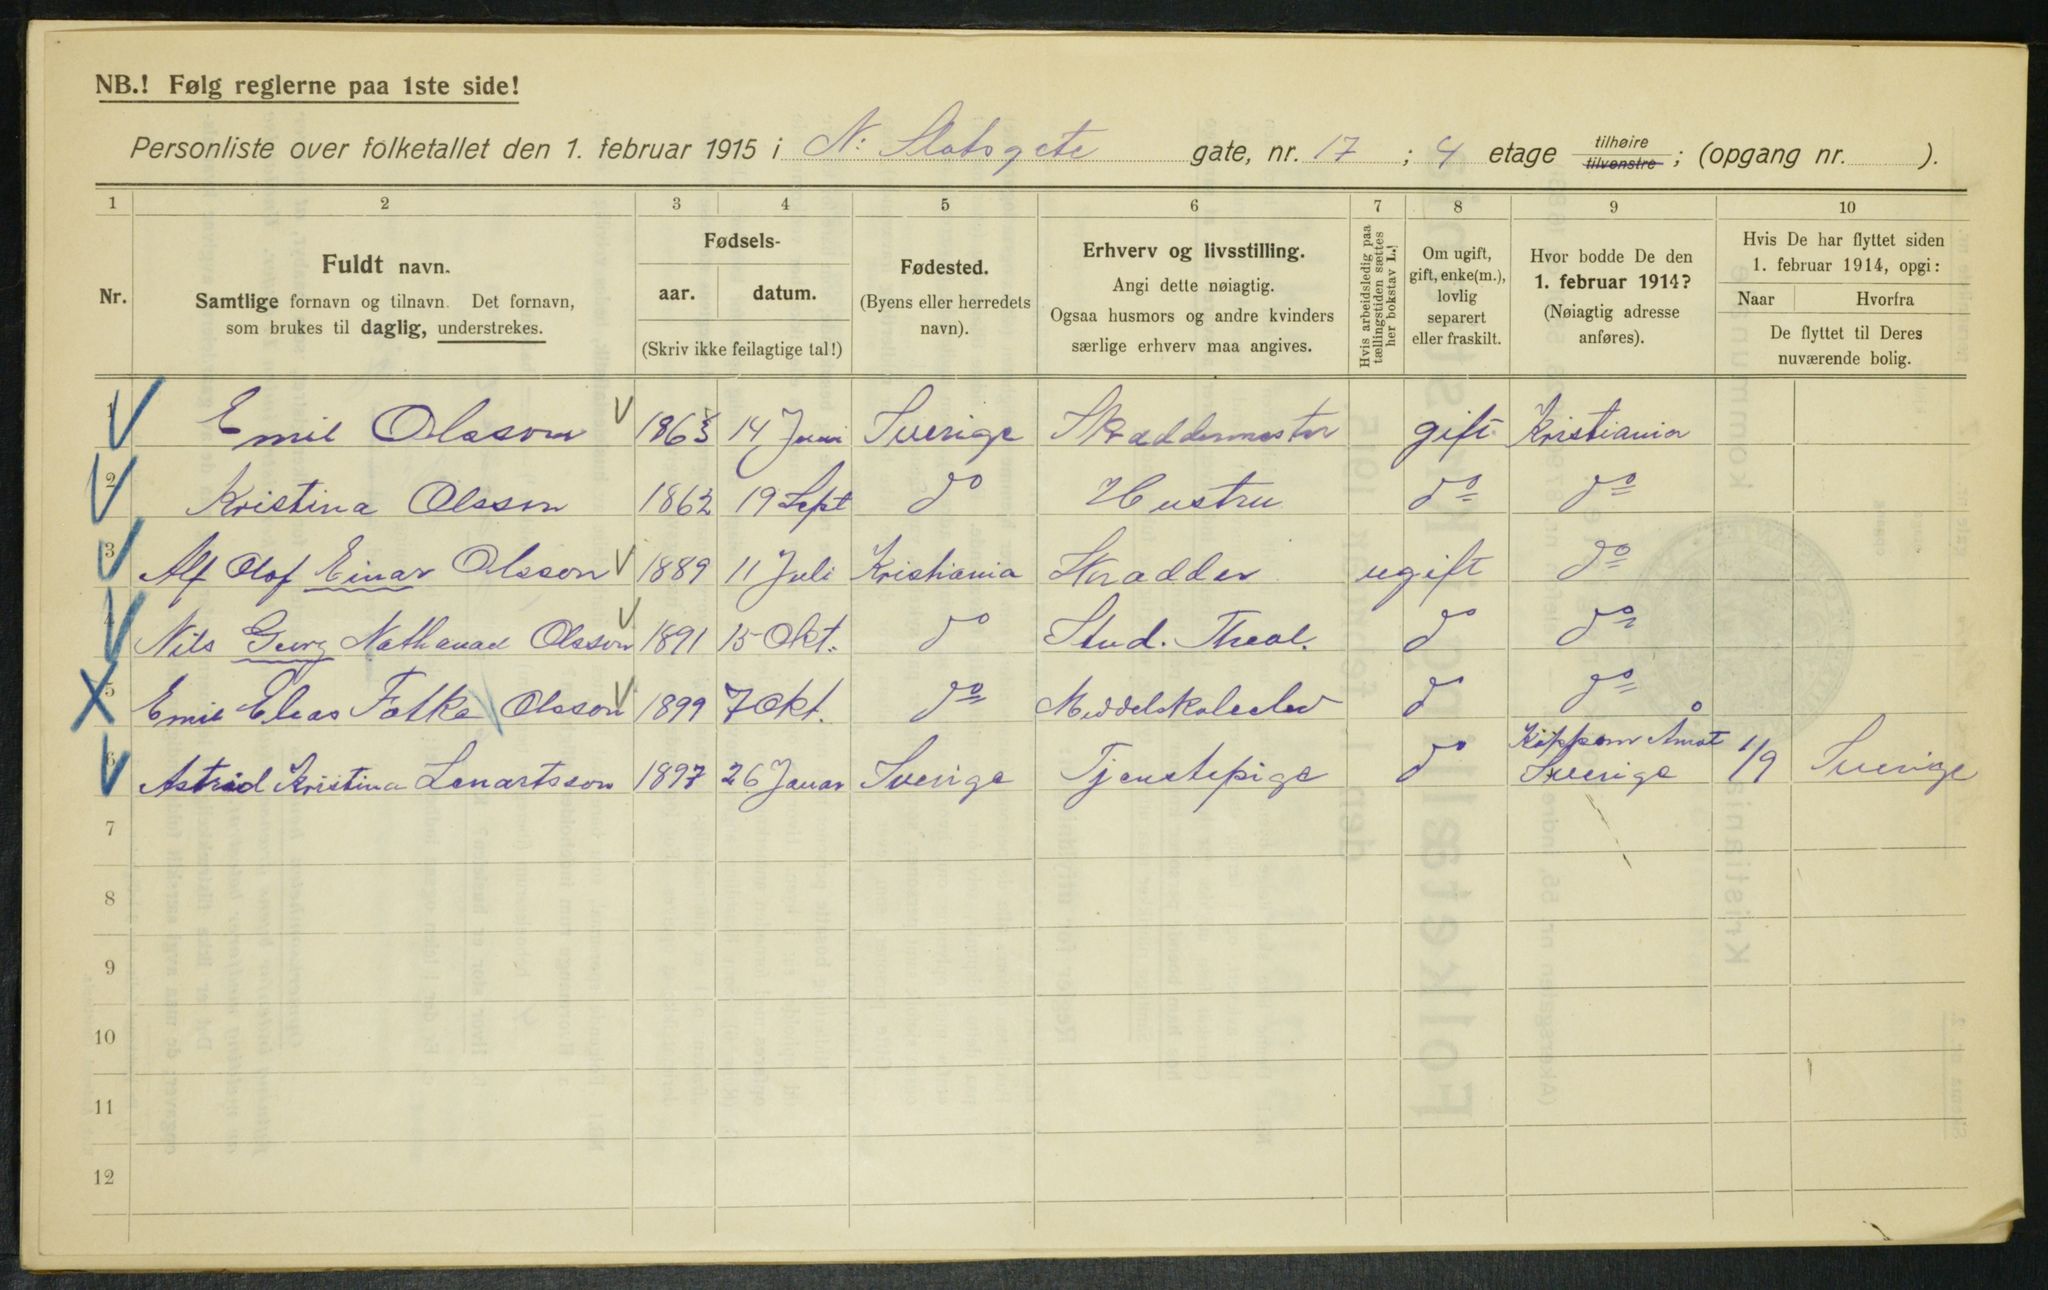 NB.! Følg reglerne paa 1ste side!
Personliste over folketallet den 1. februar 1915 i N. Slotsgate gate, nr. 17 ; 4 etage tilhøire tilvenstre ; (opgang nr. ).
1 2 3 4 5 6 7 8 9 10
Nr.
Fuldt navn.
Samtlige fornavn og tilnavn. Det fornavn,
som brukes til daglig, understrekes.
Fødsels-
aar. datum.
(Skriv ikke feilagtige tal!)
Fødested.
(Byens eller herredets
navn).
Erhverv og livsstilling.
Angi dette nøiagtig.
Ogsaa husmors og andre kvinders
særlige erhverv maa angives.
Hvis arbeidsledig paa
tællingstiden sættes
her bokstav L.!
Om ugift,
gift, enke(m.),
lovlig
separert
eller fraskilt.
Hvor bodde De den
1. februar 1914?
(Nøiagtig adresse
anføres).
Hvis De har flyttet siden
1. februar 1914, opgi:
Naar Hvorfra
De flyttet til Deres
nuværende bolig.
1 Emil Olsson 1863 14 Juni Sverige Skræddermester gift Kristiania
2 Kristina Olsson 1862 19 Sept do Hustru do do
3 Alf Olof Einar Olsson 1889 11 Juli Kristiania Skrædder ugift do
4 Nils Georg Nathanael Olsson 1891 15 Okt. do Stud. Theol. do do
5 Emil Elias Folke Olsson 1899 7 Okt. do Middelskoleelev do do
6 Astrid Kristina Lenartsson 1897 26 Januar Sverige Tjenstepige do Köppom Åmot Sverige 1/9 Sverige
7
8
9
10
11
12